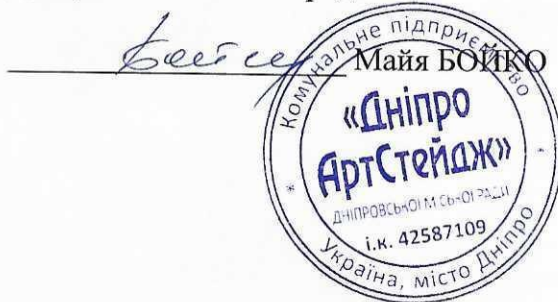 Майя БОЙКО
Комунальне підприємство
«Дніпро
АртСтейдж»
ДНІПРОВСЬКОЇ МІСЬКОЇ РАДИ
і.к. 42587109
Україна, місто Дніпро